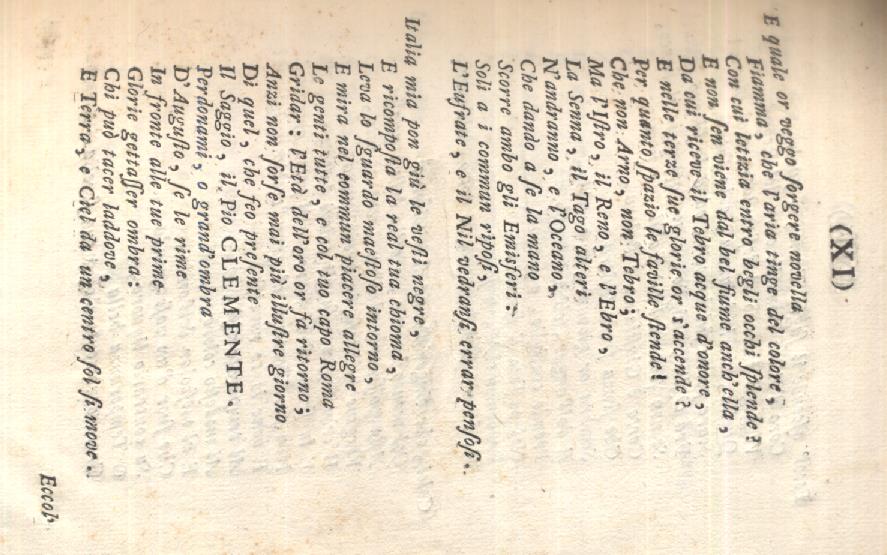 (XI)
E quale or veggo ſorgere novella
Fiamma, che l'aria tinge del colore,
Con cui letizia entro begli occhi ſplende?
E non ſen viene dal bel fiume anch'ella,
Da cui riceve il Tebro acque d'onore,
E nelle terze ſue glorie or s'accende?
Per quanto ſpazio le faville ſtende!
Che non Arno, non Tebro;
Ma l'Iſtro, il Reno, e l'Ebro,
La Senna, il Tago alteri
N'andranno, e l'Oceano,
Che dando a ſe la mano
Scorre ambo gli Emisferi:
Soli a i commun ripoſi,
L'Eufrate, e il Nil vedranſi errar penſoſi.
Italia mia pon giù le veſti negre,
E ricompoſta la real tua chioma,
Leva lo ſguardo maeſtoſo intorno,
E mira nel commun piacere allegre
Le genti tutte, e col tuo capo Roma
Gridar: l'Età dell'oro or fa ritorno;
Anzi non forſe mai più illuſtre giorno
Di quel, che feo preſente
Il Saggio, il Pio CLEMENTE.
Perdonami, o grand'ombra
D'Auguſto, ſe le rime
In fronte alle tue prime
Glorie gettaſſer ombra:
Chi può tacer laddove,
E Terra, e Ciel da un centro ſol ſi move?
Eccol